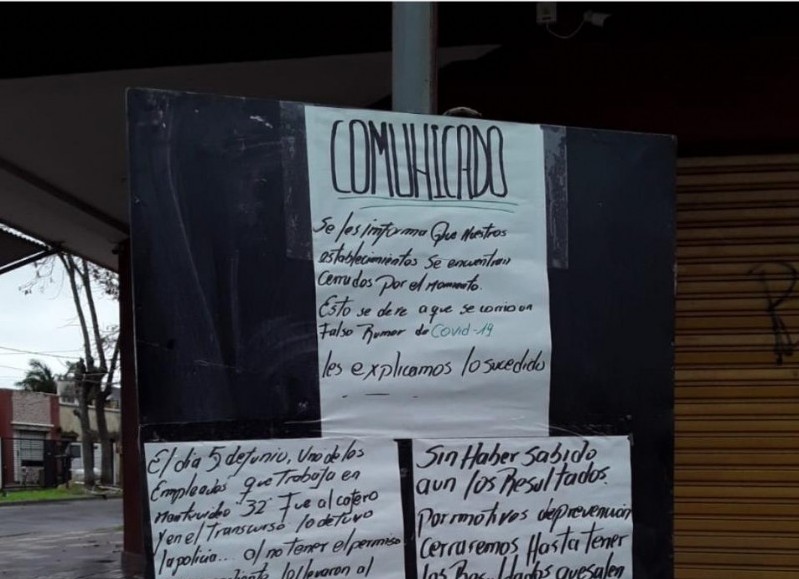 COMUNICADO
Se les imforma Que Nuestros
establecimientos Se encuentran
Cerrados Por el Momento.
Esto se debe a que se corrio un
Falso Rumor de Covid-19
les explicamos lo sucedido
El día 5 de junio, Uno de los
Empleados que Trabaja en
Montevideo "32" Fue al cajero
Y en el Transcurso lo detuvo
la policía... al no tener el permiso
lo llevaron al
Sin Haber Sabido
aun los Resultados.
Por motivos de prevencion
Cerraremos Hasta tener
los Resultados que salen